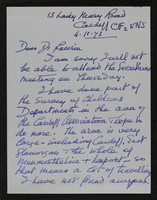 13 Lady Mary Road
Cardiff CF2 5NS
4.11.73
Dear Dr
I am sorry I will not
be able to attend the
meeting on Thursday.
I have done part of
the Survey of Childrens
Departments in the area of
the Cardiff Association & hope to
do more. The area is very
large - including Cardiff, East
Glamorgan & the whole of
Monmouthshire & Newport - so
that means a lot of travelling
I have not found